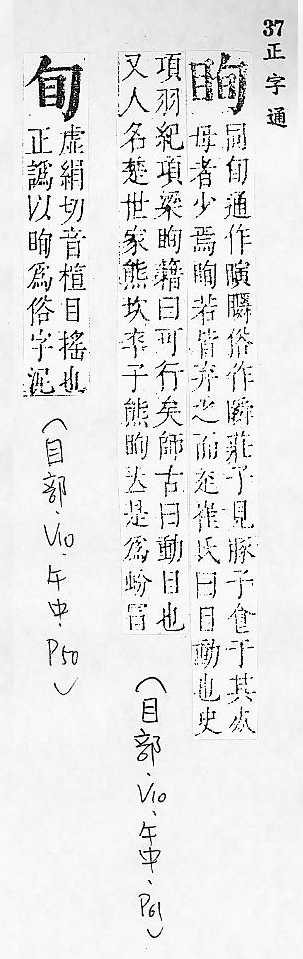 37 正字通
眴
同旬通作瞚俗作瞬莊子見豚子食于其死
母者少焉眴若皆弃之而走崔氏曰目動也史
項羽紀項梁眴籍曰可行矣師古曰動目也
又人名楚世家熊坎卒子熊眴立是爲蚡冒
(目部、V10、午中、P61)
旬
虛絹切音楦目搖也
正譌以眴爲俗字泥
(目部、V10、午中、P50)